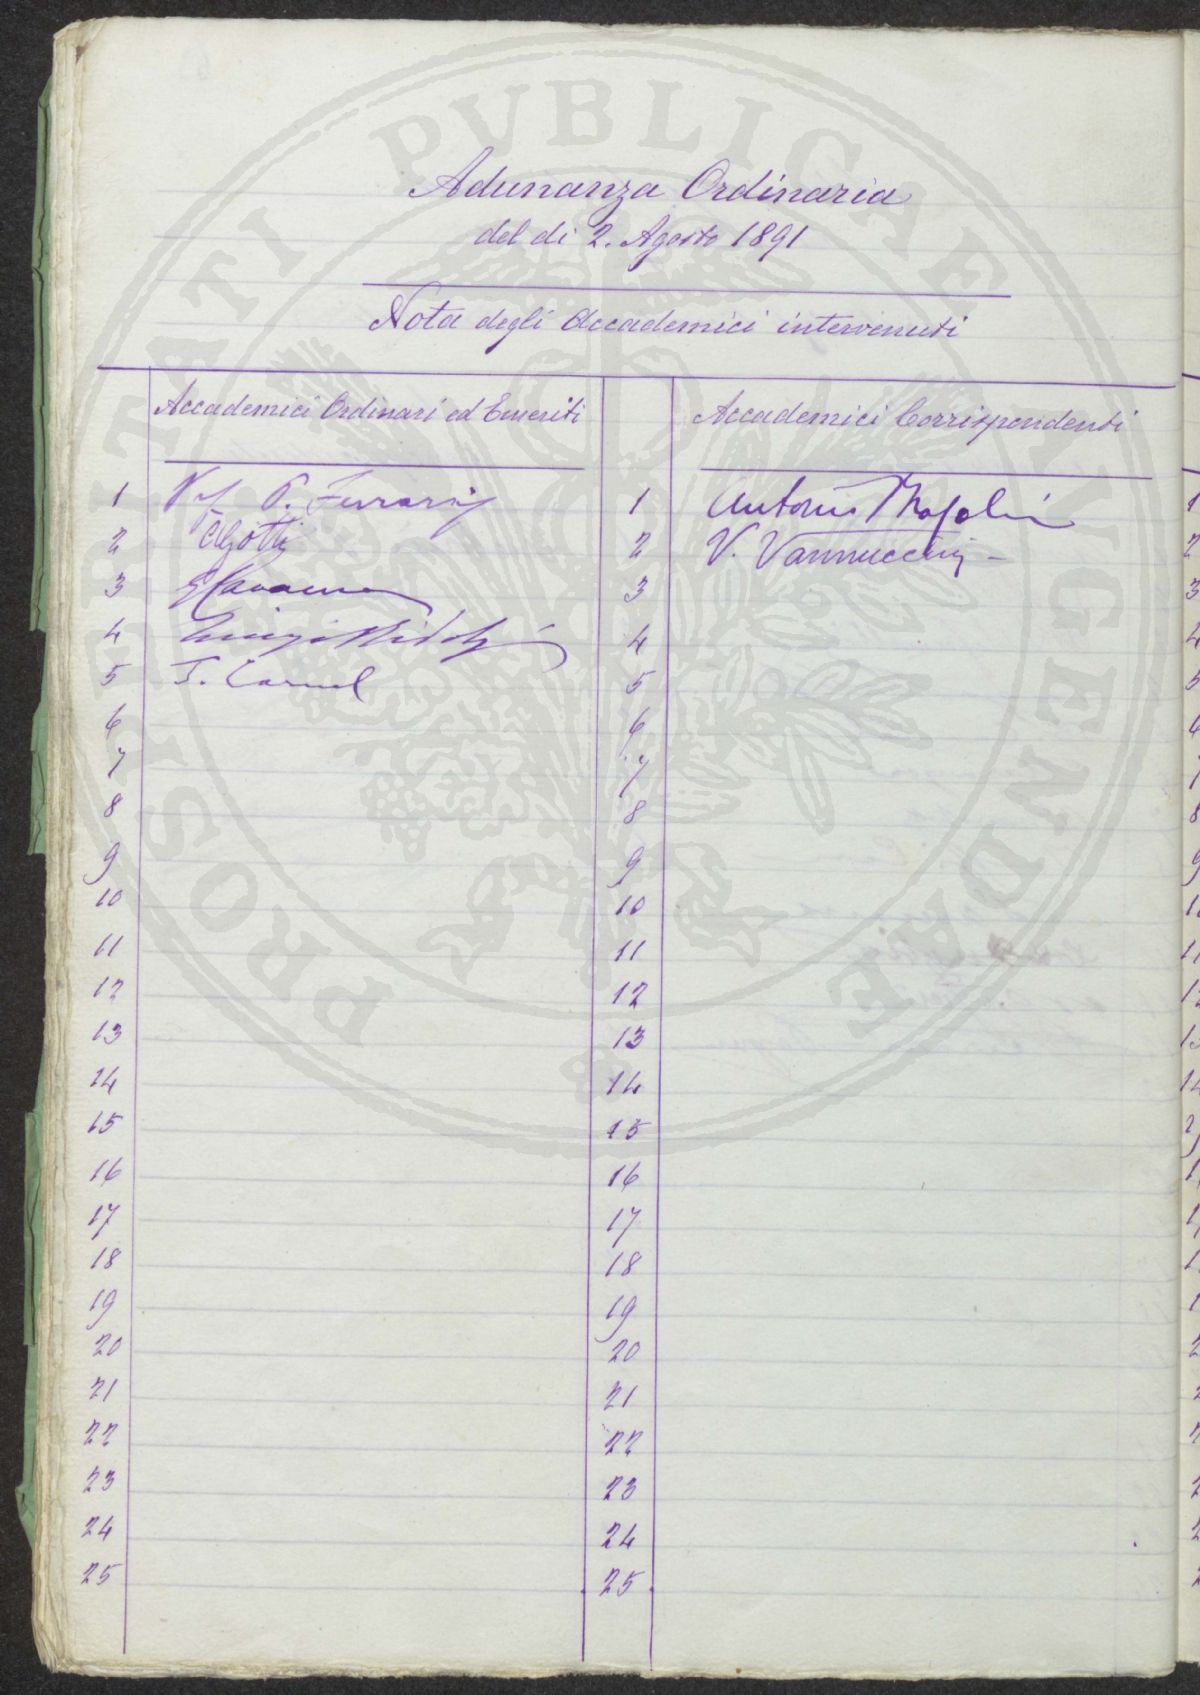 PROSPERITATI PUBLICAE AUGENDAE
Adunanza Ordinaria
del dì 2. Agosto 1891
Nota degli Accademici intervenuti
Accademici Ordinari ed Emeriti
Accademici Corrispondenti
1 P. Ferrari
2
3
4 Luigi Ridolfi
5 T. Caruel
6
7
8
9
10
11
12
13
14
15
16
17
18
19
20
21
22
23
24
25
1 Antonio
2 V. Vannuccini
3
4
5
6
7
8
9
10
11
12
13
14
15
16
17
18
19
20
21
22
23
24
25